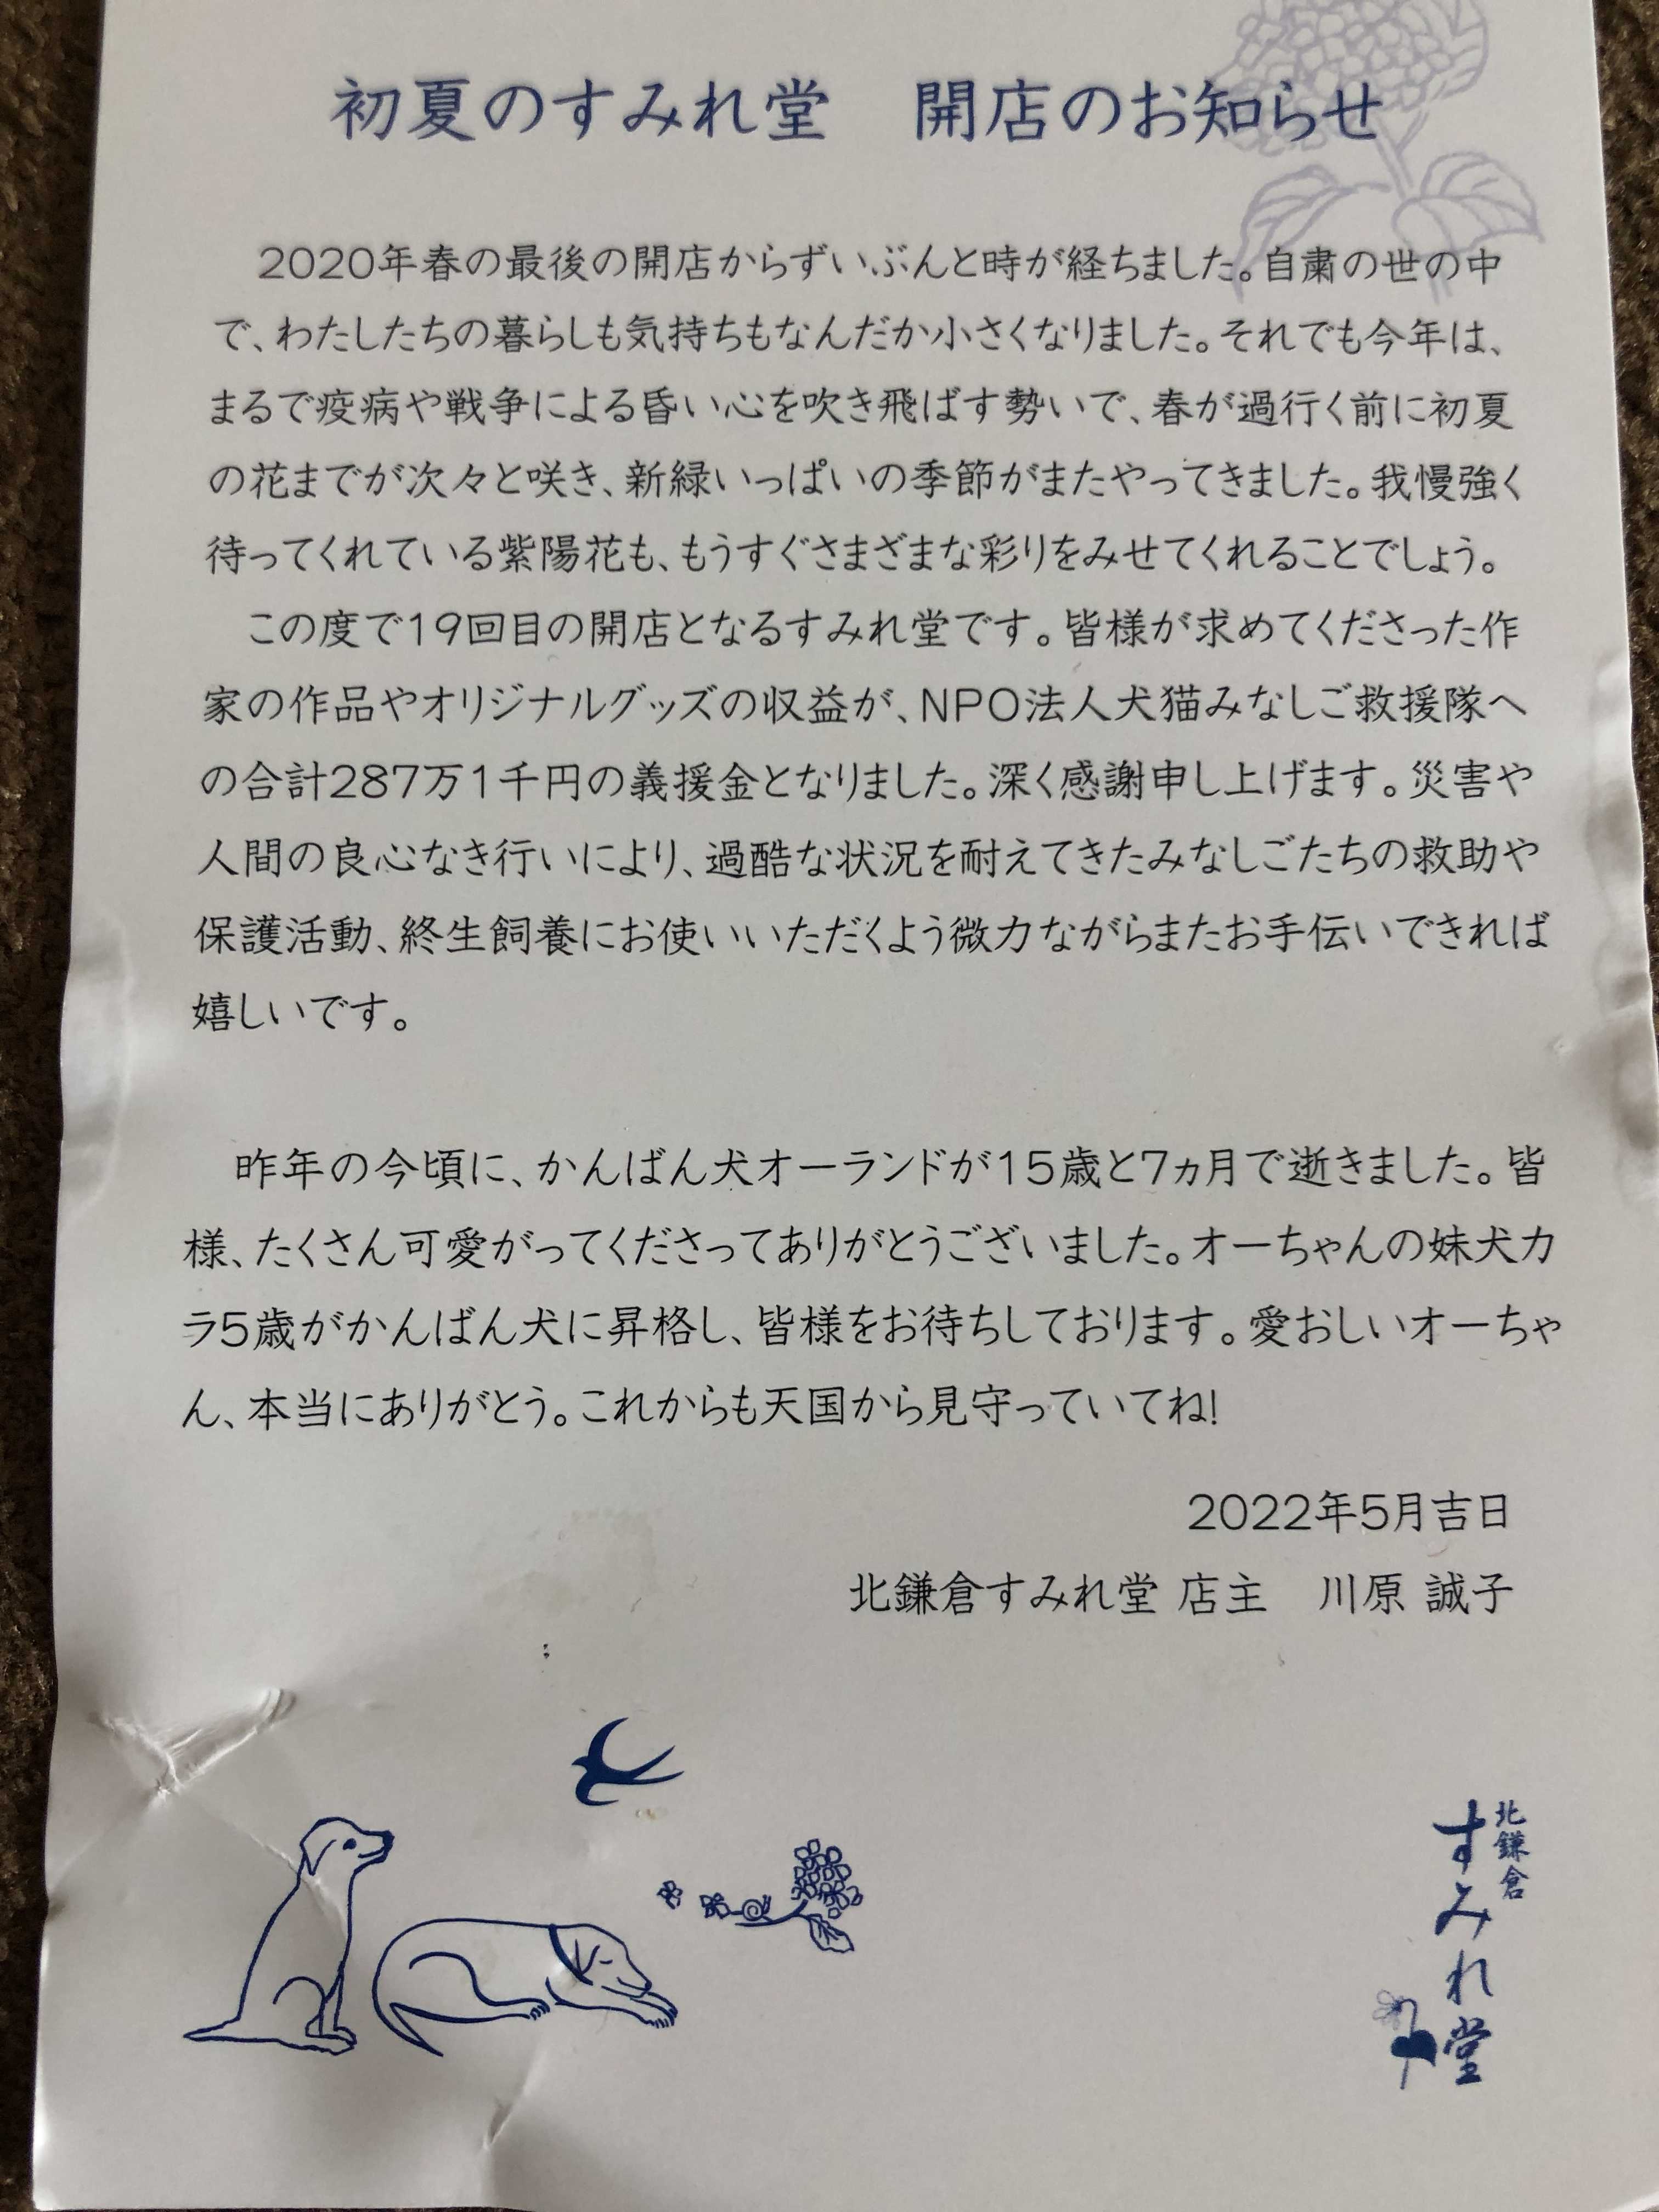 初夏のすみれ堂　開店のお知らせ
2020年春の最後の開店からずいぶんと時が経ちました。自粛の世の中
で、わたしたちの暮らしも気持ちもなんだか小さくなりました。それでも今年は、
まるで疫病や戦争による昏い心を吹き飛ばす勢いで、春が過行く前に初夏
の花までが次々と咲き、新緑いっぱいの季節がまたやってきました。我慢強く
待ってくれている紫陽花も、もうすぐさまざまな彩りをみせてくれることでしょう。
この度で19回目の開店となるすみれ堂です。皆様が求めてくださった作
家の作品やオリジナルグッズの収益が、NPO法人犬猫みなしご救援隊へ
の合計287万1千円の義援金となりました。深く感謝申し上げます。災害や
人間の良心なき行いにより、過酷な状況を耐えてきたみなしごたちの救助や
保護活動、終生飼養にお使いいただくよう微力ながらまたお手伝いできれば
嬉しいです。
昨年の今頃に、かんばん犬オーランドが15歳と7ヵ月で逝きました。皆
様、たくさん可愛がってくださってありがとうございました。オーちゃんの妹犬カ
ラ5歳がかんばん犬に昇格し、皆様をお待ちしております。愛おしいオーちゃ
ん、本当にありがとう。これからも天国から見守っていてね!
2022年5月吉日
北鎌倉すみれ堂 店主　川原 誠子
北鎌倉
すみれ堂